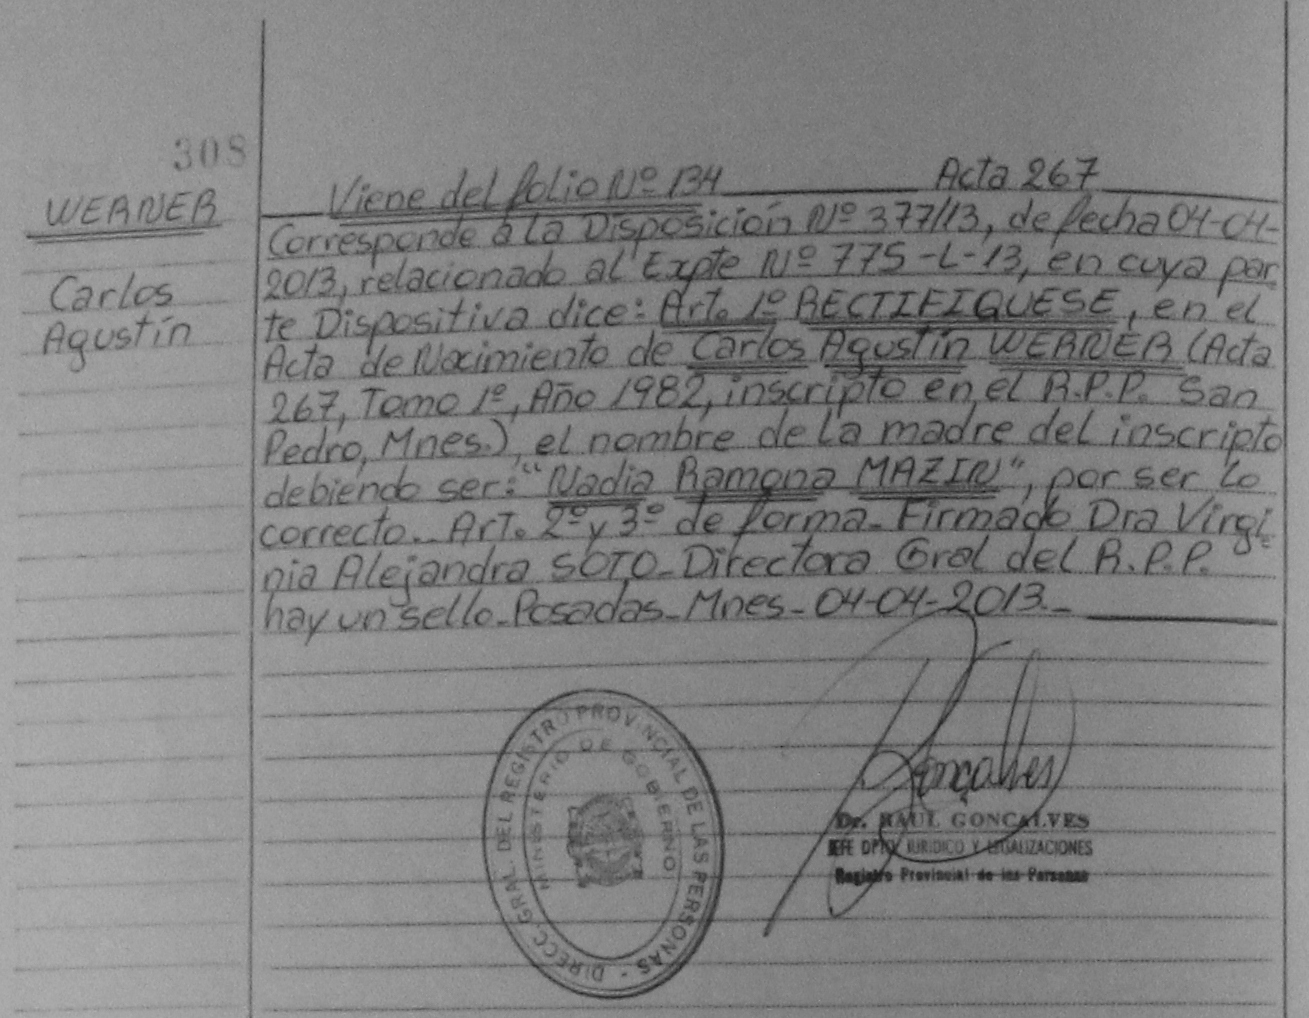 308
WERNER
Carlos
Agustín
Viene del folio Nº 134 Acta 267
Corresponde a la Disposición Nº 377/13, de fecha 04-04-
2013, relacionado al Expte Nº 775-L-13, en cuya par
te Dispositiva dice: Art. 1º RECTIFIQUESE, en el
Acta de Nacimiento de Carlos Agustín WERNER (Acta
267, Tomo 1º, Año 1982, inscripto en el R.P.P. San
Pedro, Mnes.), el nombre de la madre del inscripto
debiendo ser: "Nadia Ramona MAZIN", por ser lo
correcto.- Art. 2º y 3º de forma- Firmado Dra Virgi
nia Alejandra SOTO- Directora Gral del R.P.P.
hay un sello- Posadas- Mnes- 04-04-2013.-
DIRECC. GRAL. DEL REGISTRO PROVINCIAL DE LAS PERSONAS -
MINISTERIO DE GOBIERNO
Gonçalves
Dr. RAUL GONCALVES
JEFE DPTO. JURIDICO Y LEGALIZACIONES
Registro Provincial de las Personas